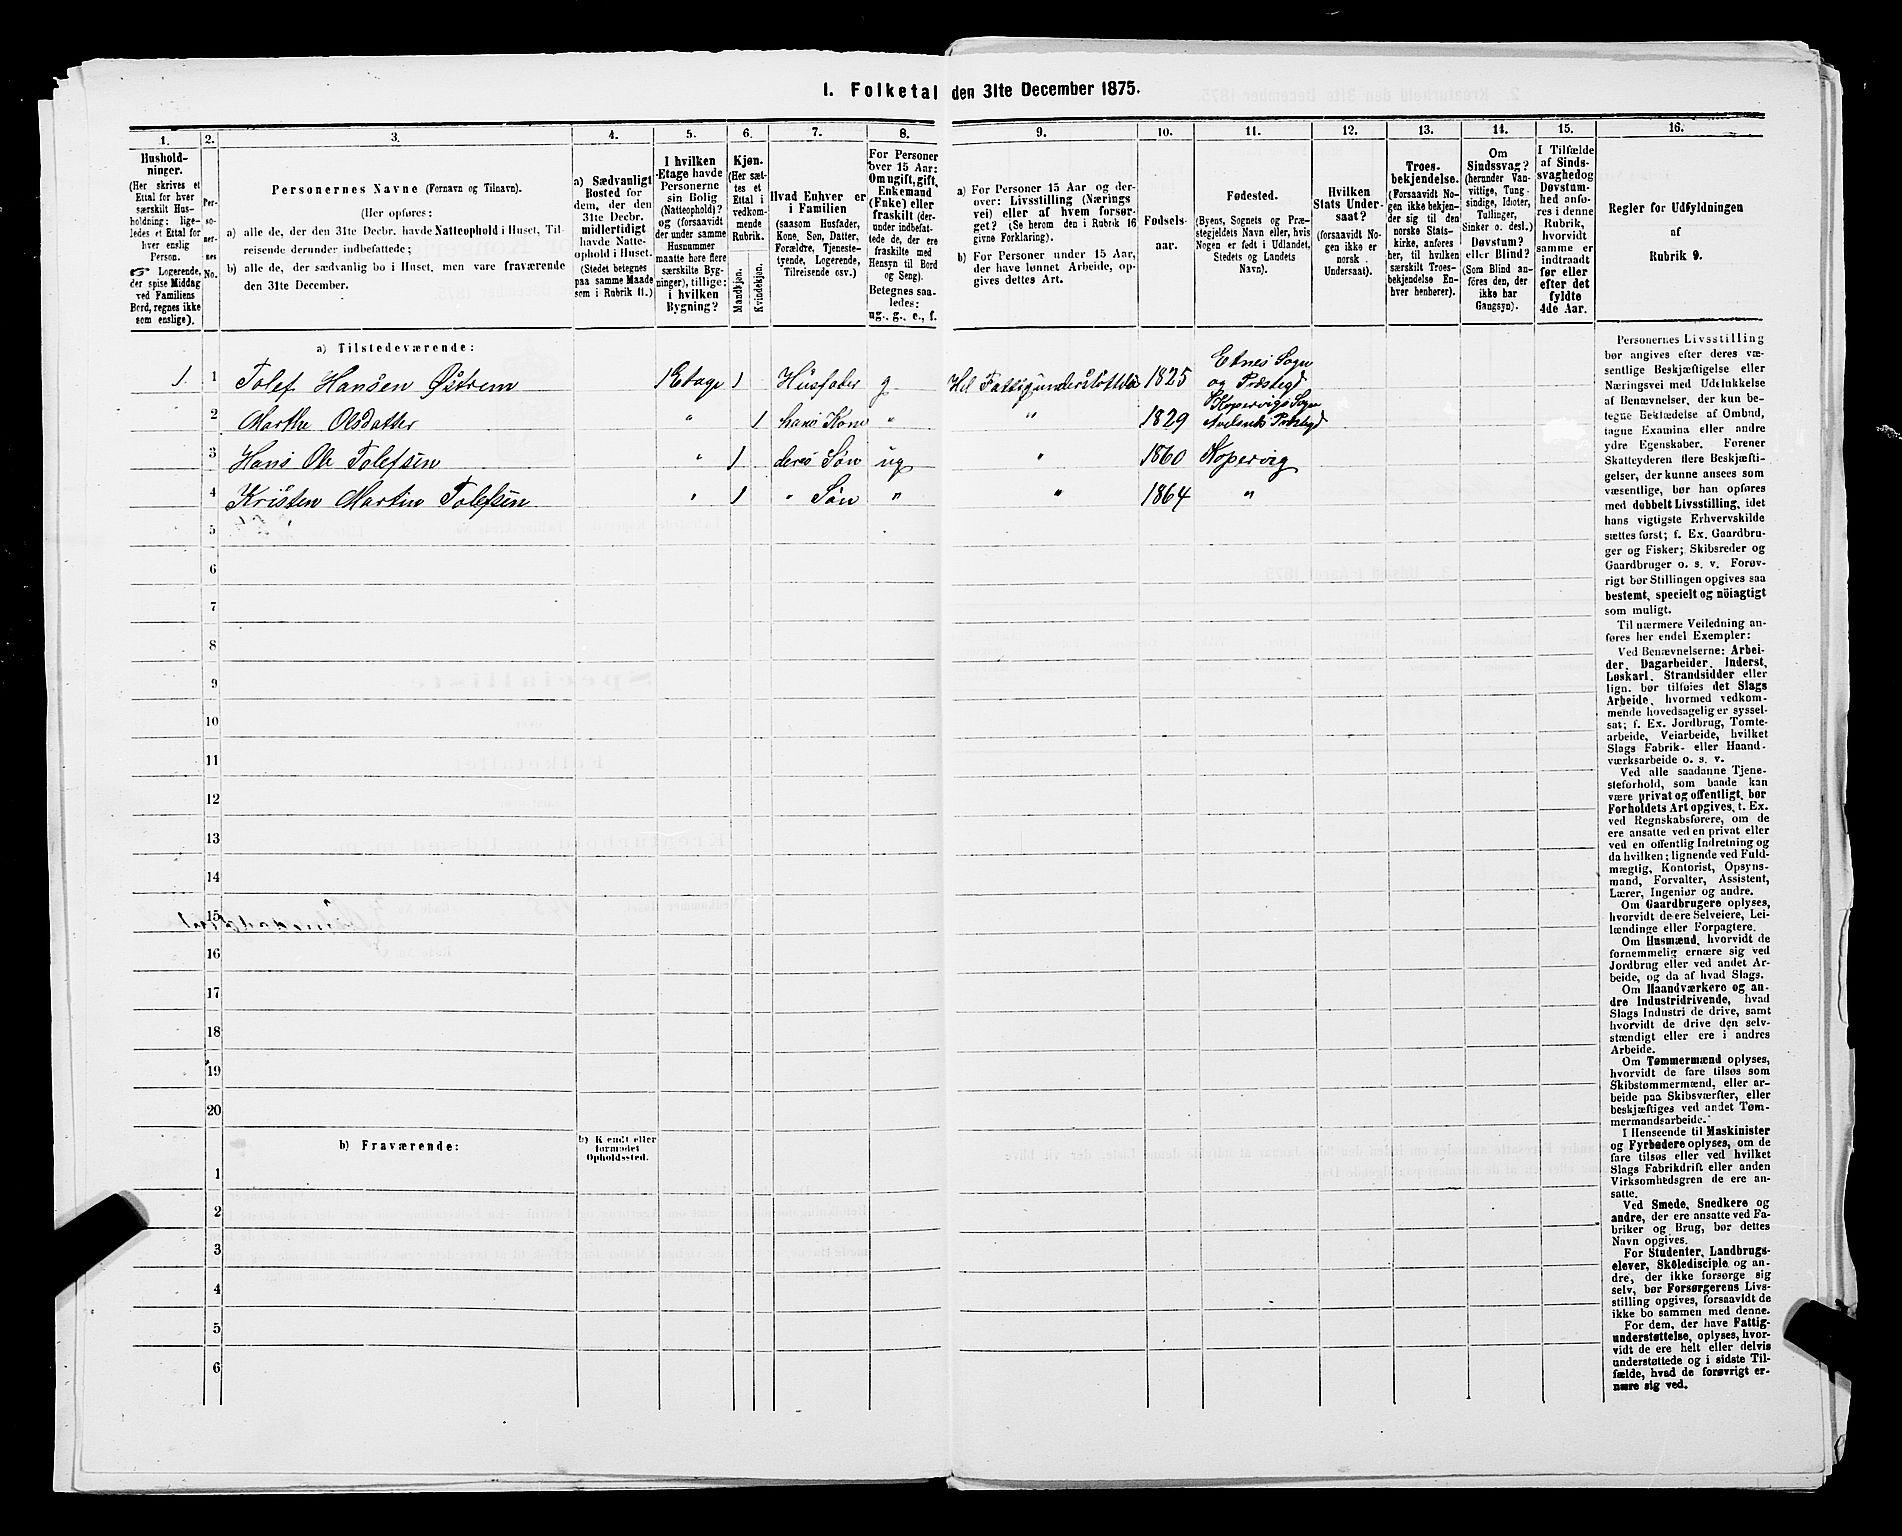 1. Folketal den 31te December 1875.
1. 2. 3. 4. 5. 6. 7. 8. 9. 10. 11. 12. 13. 14. 15. 16.
Hushold-
ninger.
(Her skrives et
Ettal for hver
særskilt Hus-
holdning; lige-
ledes et Ettal for
hver enslig
Person.
☞ Logerende,
der spise Middag
ved Familiens
Bord, regnes ikke
som enslige).
Per-
so-
ner-
nes
No.
Personernes Navne (Fornavn og Tilnavn).
(Her opføres:
a) alle de, der den 31te Decbr. havde Natteophold i Huset, Til-
reisende derunder indbefattede;
b) alle de, der sædvanlig bo i Huset, men vare fraværende
den 31te December.
a) Sædvanligt
Bosted for
dem, der den
31te Decbr.
midlertidigt
havde Natte-
ophold i Huset.
(Stedet betegnes
paa samme Maade
som i Rubrik 11.)
I hvilken
Etage havde
Personerne
sin Bolig
(Natteophold)?
og (forsaavidt
der under samme
Husnummer
maatte høre flere
særskilte Byg-
ninger), tillige:
i hvilken
Bygning?
Kjøn.
(Her sæt-
tes et
Ettal i
vedkom-
mende
Rubrik.
Mandkjøn.
Kvindekjøn.
Hvad Enhver er
i Familien
(saasom Husfader,
Kone, Søn, Datter,
Forældre, Tjeneste-
tyende, Logerende,
Tilreisende osv.)
For Personer
over 15 Aar:
Om ugift, gift,
Enkemand
(Enke) eller
fraskilt (der-
under indbefat-
tede de, der ere
fraskilte med
Hensyn til Bord
og Seng).
Betegnes saa-
ledes:
ug., g., e., f.
a) For Personer 15 Aar og der-
over: Livsstilling (Nærings
vei) eller af hvem forsør-
get? (Se herom den i Rubrik 16
givne Forklaring).
b) For Personer under 15 Aar,
der have lønnet Arbeide, op-
gives dettes Art.
Fødsels-
aar.
Fødested.
(Byens, Sognets og Præ-
stegjeldets Navn eller, hvis
Nogen er født i Udlandet,
Stedets og Landets
Navn).
Hvilken
Stats Under-
saat?
(forsaavidt No-
gen ikke er
norsk
Undersaat).
Troes-
bekjendelse.
(Forsaavidt No-
gen ikke bekjen-
der sig til den
norske Stats-
kirke, anføres
her, til hvilket
særskilt Troes-
bekjendelse En-
hver henhører).
Om
Sindssvag?
(herunder Van-
vittige, Tung-
sindige, Idioter,
Tullinger,
Sinker o. desl.)
Døvstum?
eller Blind?
(Som Blind an-
føres den, der
ikke har
Gangsyn).
I Tilfælde
af Sinds-
svaghed og
Døvstum-
hed anfø-
res i denne
Rubrik,
hvorvidt
samme er
indtraadt
før eller
efter det
fyldte
4de Aar.
Regler for Udfyldningen
af
Rubrik 9.
a) Tilstedeværende:
1. 1 Tolef Hansen Østrem 1 Etage 1 Husfader g Hel Fattigunderstøttelse 1825 Etnes Sogn
og Præstegd
2 Marthe Olsdatter " 1 hans Kone " " 1829 Kopervigs Sogn
Avelsnæs Præstegd
3 Hans Ole Tolefsen " 1 deres Søn ug " 1860 Kopervig
4 Kristen Martin Tolefsen " 1 " Søn " " 1864 "
5
6
7
8
9
10
11
12
13
14
15
16
17
18
19
20
b) Fraværende: b) Kjendt eller
formodet
Opholdssted.
1
2
3
4
5
6
Personernes Livsstilling
bør angives efter deres væ-
sentlige Beskjæftigelse eller
Næringsvei med Udelukkelse
af Benævnelser, der kun be-
tegne Beklædelse af Ombud,
tagne Examina eller andre
ydre Egenskaber. Forener
Skatteyderen flere Beskjæfti-
gelser, der kunne ansees som
væsentlige, bør han opføres
med dobbelt Livsstilling, idet
hans vigtigste Erhvervskilde
sættes først; f. Ex. Gaardbru-
ger og Fisker; Skibsreder og
Gaardbruger o. s. v. Forøv-
rigt bør Stillingen opgives saa
bestemt, specielt og nöiagtigt
som muligt.
Til nærmere Veiledning an-
føres her endel Exempler:
Ved Benævnelserne: Arbei-
der, Dagarbeider, Inderst,
Løskarl, Strandsidder eller
lign. bør tilføies det Slags
Arbeide, hvormed vedkom-
mende hovedsagelig er syssel-
sat; f. Ex. Jordbrug, Tomte-
arbeide, Veiarbeide, hvilket
Slags Fabrik- eller Haand-
værksarbeide o. s. v.
Ved alle saadanne Tjene-
steforhold, som baade kan
være privat og offentligt, bør
Forholdets Art opgives, t. Ex.
ved Regnskabsførere, om de
ere ansatte ved en privat eller
ved en offentlig Indretning og
da hvilken; lignende ved Fuld-
mægtig, Kontorist, Opsyns-
mand, Forvalter, Assistent,
Lærer, Ingeniør og andre.
Om Gaardbrugere oplyses,
hvorvidt de ere Selveiere, Lei-
lændinge eller Forpagtere.
Om Husmænd, hvorvidt de
fornemmelig ernære sig ved
Jordbrug eller ved andet Ar-
beide, og da af hvad Slags.
Om Haandværkere og an-
dre Industridrivende, hvad
Slags Industri de drive, samt
hvorvidt de drive den selv-
stændigt eller ere i andres
Arbeide.
Om Tømmermænd oplyses,
hvorvidt de fare tilsøs som
Skibstømmermænd, eller ar-
beide paa Skibsværfter, eller
beskjæftiges ved andet Tøm-
mermandsarbeide.
I Henseende til Maskinister
og Fyrbødere oplyses, om de
fare tilsøs eller ved hvilket
Slags Fabrikdrift eller anden
Virksomhedsgren de ere an-
satte.
Ved Smede, Snedkere og
andre, der ere ansatte ved Fa-
briker og Brug, bør dettes
Navn opgives.
For Studenter, Landbrugs-
elever, Skoledisciple og an-
dre, der ikke forsørge sig
selv, bør Forsørgerens Livs-
stilling opgives, forsaavidt de
ikke bo sammen med denne.
For dem, der have Fattig-
understøttelse, oplyses, hvor-
vidt de ere helt eller delvis
understøttede og i sidste Til-
fælde, hvad de forøvrigt er-
nære sig ved.